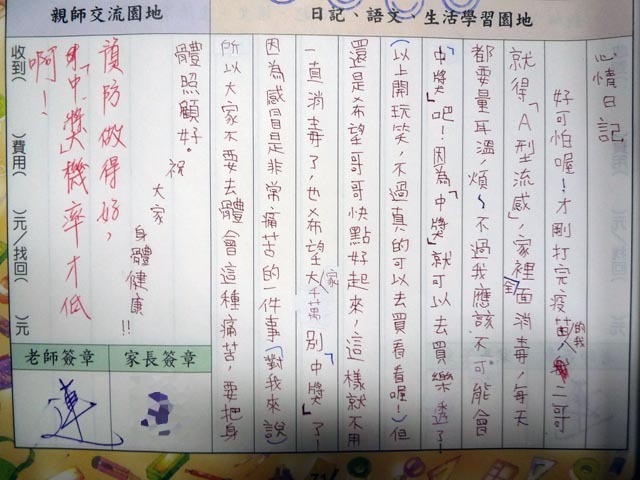 日記、語文、生活學習園地
親師交流園地
心情日記
好可怕喔!才剛打完疫苗的我二哥
就得「A型流感」,家裡全面消毒,每天
都要量耳溫,煩~不過我應該不可能會
「中獎」吧!因為「中獎」就可以去買樂透了!
(以上開玩笑,不過真的可以去買看看喔!)但
還是希望哥哥快點好起來,這樣就不用
一直消毒了,也希望大家千萬別「中獎」了!
因為感冒是非常痛苦的一件事(對我來說)
所以大家不要去體會這種痛苦,要把身
體照顧好。祝
大家
身體健康!!
預防做得好,
「中獎」機率才低
啊!
收到( )費用( )元/找回( )元
家長簽章
老師簽章